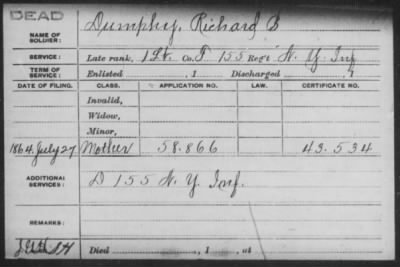 DEAD
NAME OF SOLDIER: Dumphy, Richard B
SERVICE: Late rank, 1 Lt. Co. F 155 Reg't N. Y. Inf
TERM OF SERVICE: Enlisted , 1 Discharged , 1
DATE OF FILING. CLASS. APPLICATION NO. LAW. CERTIFICATE NO.
Invalid,
Widow,
Minor,
1864, July 27 Mother 58.866 43.534
ADDITIONAL SERVICES: D 155 N. Y. Inf.
REMARKS:
Died , 1 , at